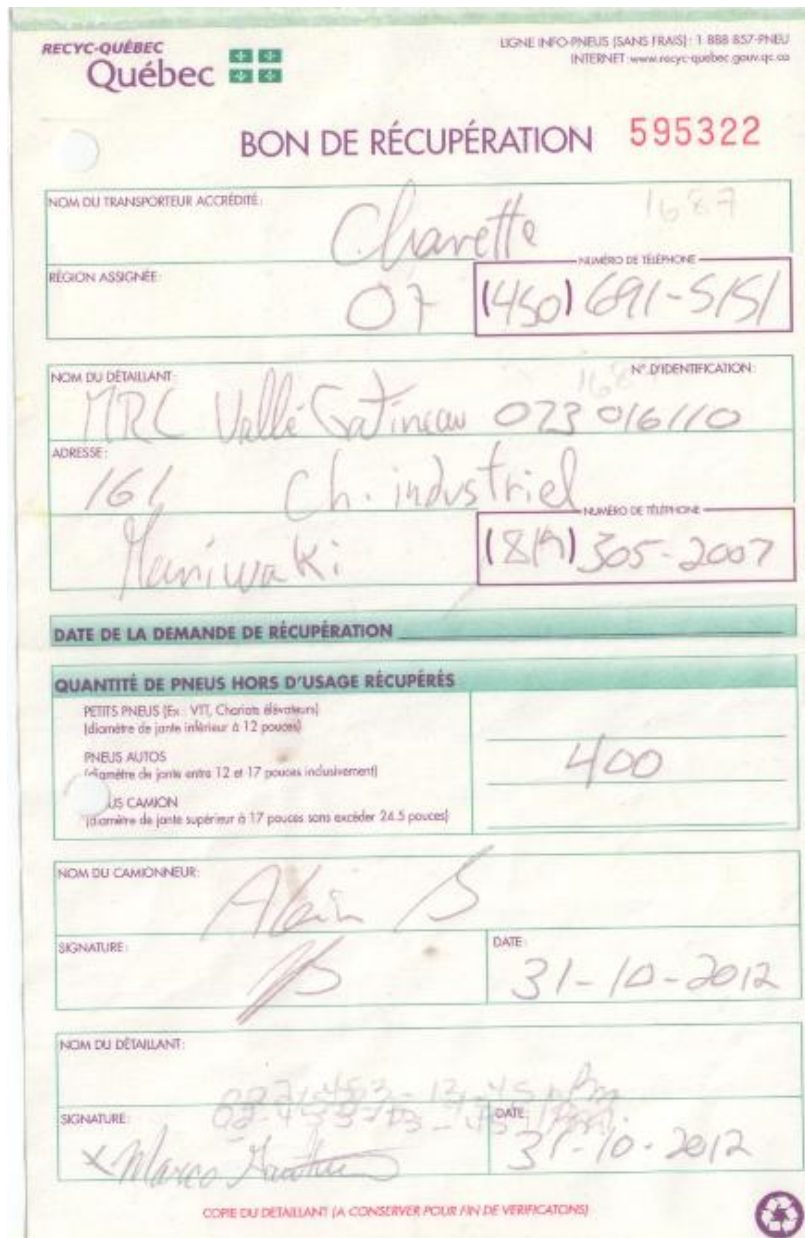 RECYC-QUÉBEC
Québec
LIGNE INFO-PNEUS (SANS FRAIS) : 1 888 857-PNEU
INTERNET : www.recyc-quebec.gouv.qc.ca
BON DE RÉCUPÉRATION 595322
NOM DU TRANSPORTEUR ACCRÉDITÉ : 1687
Charette
RÉGION ASSIGNÉE : NUMÉRO DE TÉLÉPHONE
07 (450) 691-5151
NOM DU DÉTAILLANT : N° D'IDENTIFICATION :
MRC Vallé Gatineau 073 016110
ADRESSE :
161 Ch. industriel
NUMÉRO DE TÉLÉPHONE
Maniwaki (819) 305-2007
DATE DE LA DEMANDE DE RÉCUPÉRATION
QUANTITÉ DE PNEUS HORS D'USAGE RÉCUPÉRÉS
PETITS PNEUS (Ex : VTT, Chariots élévateurs)
(diamètre de jante inférieur à 12 pouces)
PNEUS AUTOS 400
(diamètre de jante entre 12 et 17 pouces inclusivement)
US CAMION
(diamètre de jante supérieur à 17 pouces sans excéder 24.5 pouces)
NOM DU CAMIONNEUR :
Alain B
SIGNATURE : DATE :
31-10-2012
NOM DU DÉTAILLANT :
SIGNATURE : DATE :
x Marco 31-10-2012
COPIE DU DÉTAILLANT (A CONSERVER POUR FIN DE VERIFICATONS)